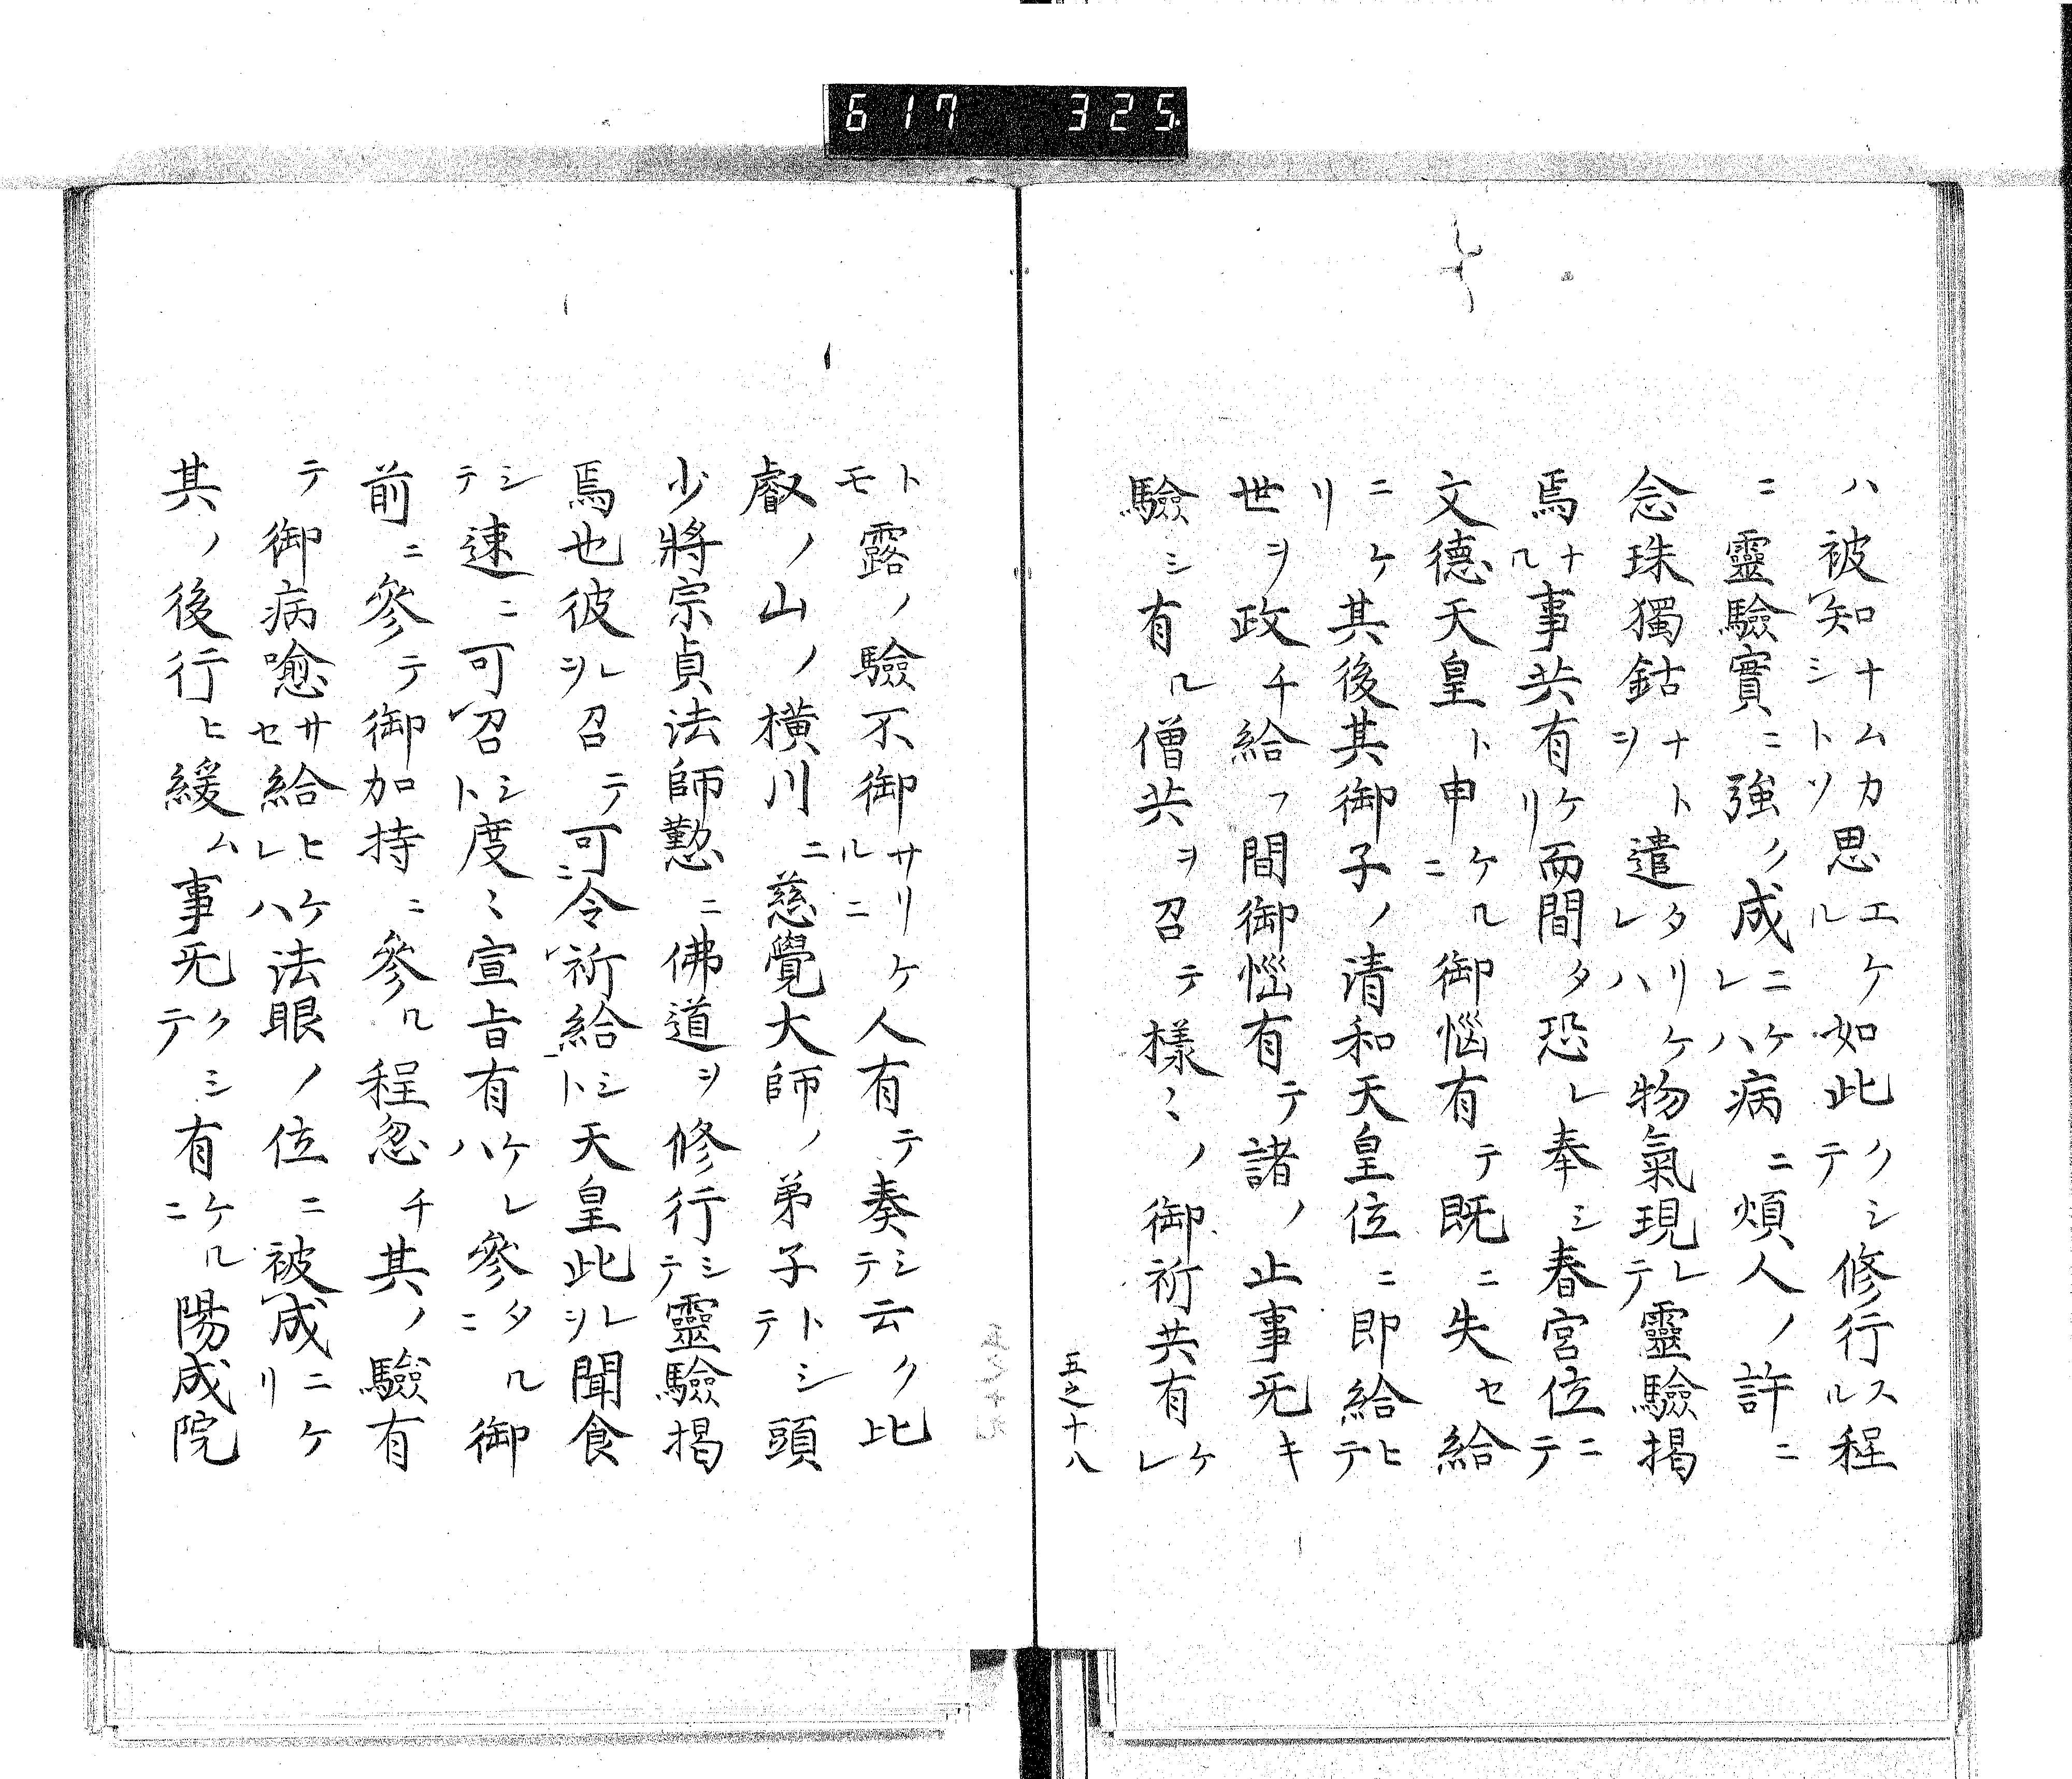 617 325
ハ被知ナムカシトソ思エケル如此クシテ修行スル程
ニ靈驗實ニ強ク成ニケレハ病ニ煩人ノ許ニ
念珠獨鈷ナトヲ遣タリケレハ物氣現レテ靈驗掲
焉ナル事共有ケリ而間タ恐レ奉シ春宮位ニテ
文德天皇ト申ケルニ御悩有テ既ニ失セ給
ニケリ其後其御子ノ清和天皇位ニ即給ヒテ
世ヲ政チ給フ間御惱有テ諸ノ止事旡キ
驗シ有ル僧共ヲ召テ樣〻ノ御祈共有ケレ
五之十八
トモ露ノ驗不御サリケルニ人有テ奏シテ云ク比
叡ノ山ノ横川ニ慈覺大師ノ弟子トシテ頭
少將宗貞法師懃ニ佛道ヲ修行シテ靈驗掲
焉也彼レヲ召テ可令祈給シト天皇此レヲ聞食
シテ速ニ可召シト度〻宣旨有ケレハ參タルニ御
前ニ參テ御加持ニ參ル程忽チ其ノ驗有
テ御病喩サセ給ヒケレハ法眼ノ位ニ被成ニケリ
其ノ後行ヒ緩ム事旡クシテ有ケルニ陽成院